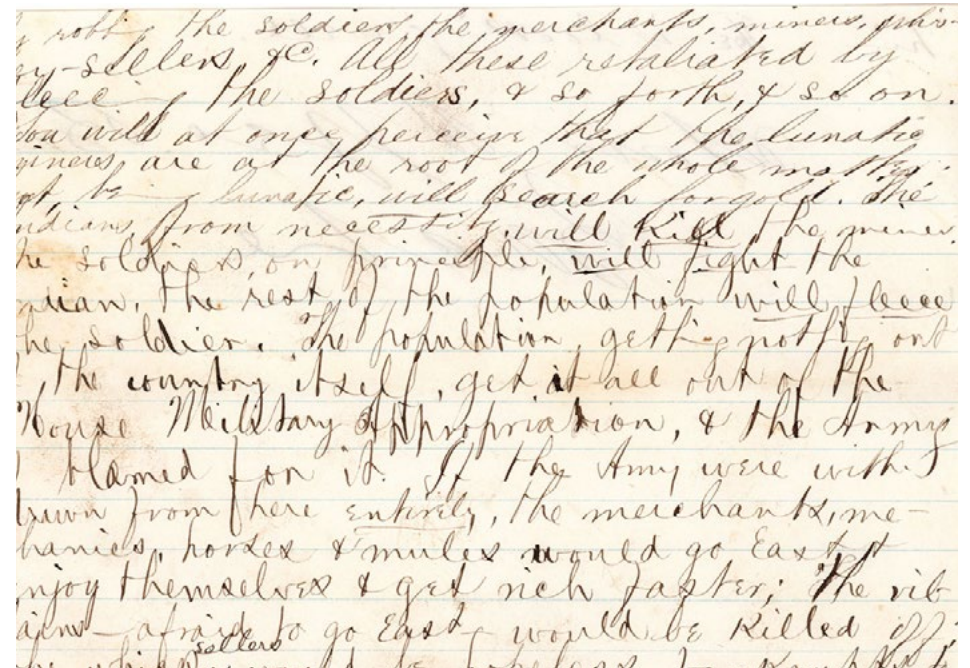 robbing the soldiers, the merchants, miners, whis-
-sellers &C. All these retaliated by
fleecing the soldiers, & so forth, & so on.
You will at once perceive that the lunatic
miners are at the root of the whole matter.
being lunatic, will search for gold. The
ndians, from necessity, will kill the miner.
he soldiers, on principle, will fight the
ndian. The rest of the population will fleece
he soldier. The population, getting nothing out
, the country itself, get it all out of the
House Military Appropriation, & the Army
blamed for it. If the Army were with-
drawn from here entirely, the merchants, me-
hanics, horses & mules would go East &
njoy themselves & get rich faster; The vil-
ains - afraid to go East - would be killed off;
sellers